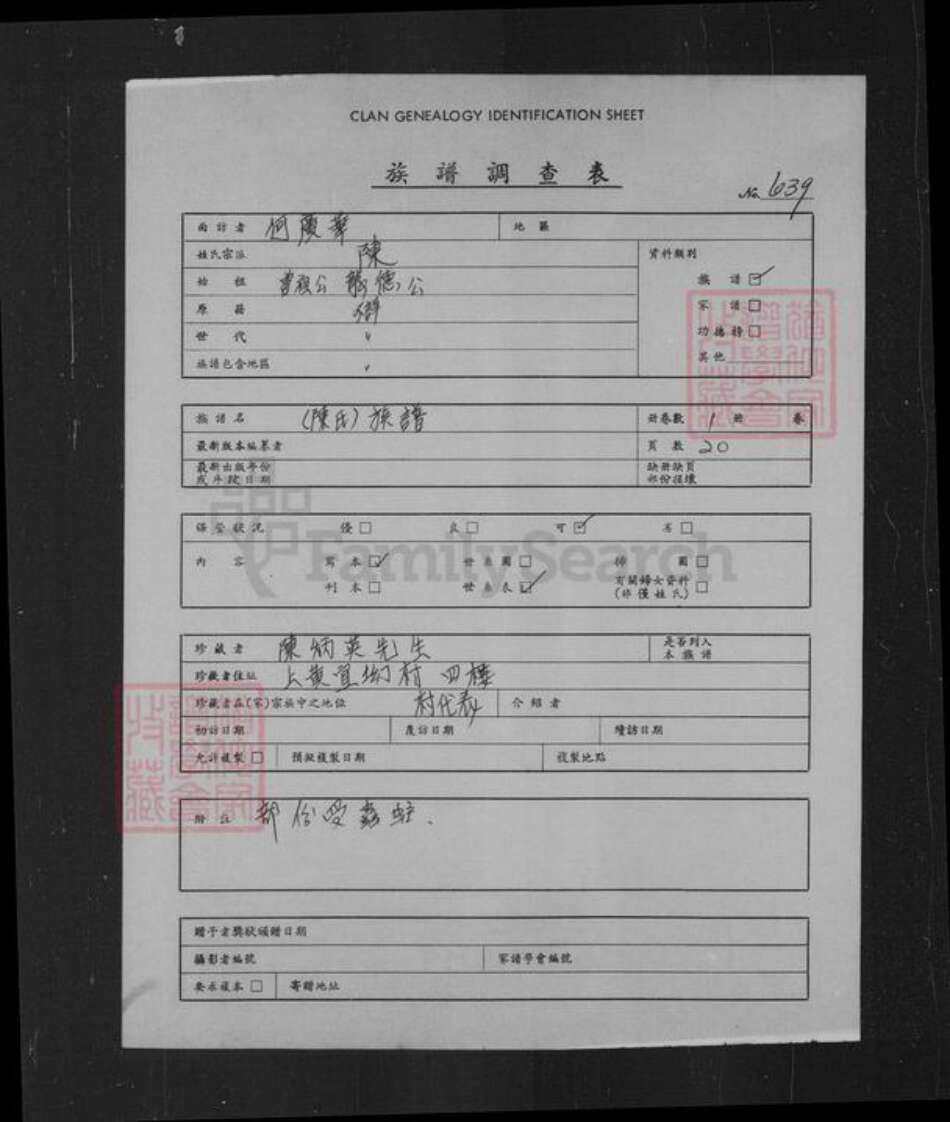 CLAN GENEALOGY IDENTIFICATION SHEET
族譜調查表
No. 639
面訪者 何慶華 地區
姓氏宗派 陳 資料類別
始祖 德公 族譜☑
原籍 家譜□
世代 〃 功德榜□
族譜包含地區 〃 其他
族譜名 (陳氏)族譜 冊卷數 1 冊 卷
最新版本編纂者 頁數 20
最新出版年份 缺冊缺頁
或年段日期 部份損壞
保管狀況 優□ 良□ 可☑ 劣□
內容 寫本☑ 世系圖□ 插圖□
刊本□ 世系表☑ 有關婦女資料□
(非僅姓氏)
珍藏者 陳炳英先生 是否列入
本族譜
珍藏者住址 上黃宜坳村 四樓
珍藏者在(家)宗族中之地位 村代表 介紹者
初訪日期 覆訪日期 續訪日期
允許複製□ 預擬複製日期 複製地點
附註 部份受蟲蛀.
贈予者獎狀頒贈日期
攝影者編號 家譜學會編號
要求複本□ 寄贈地址
FamilySearch